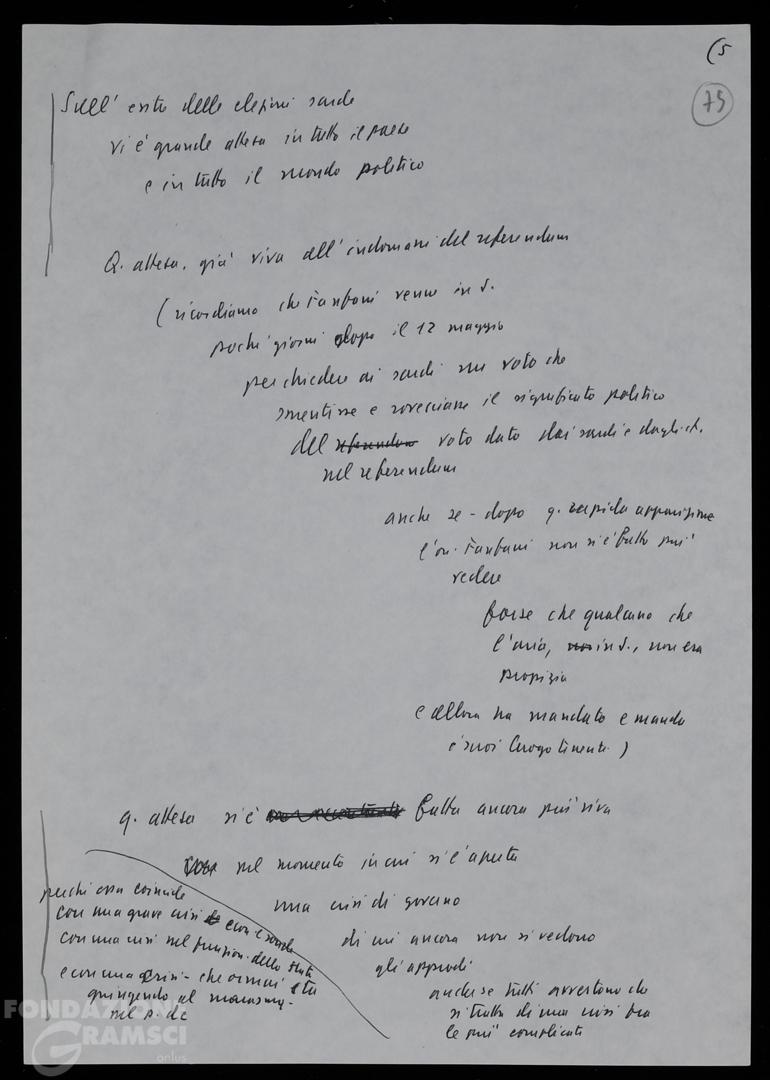 (5
75
Sull' esito delle elezioni sarde
vi è grande attesa in tutto il paese
e in tutto il mondo politico
Q. attesa, già viva all' indomani del referendum
(ricordiamo che Fanfani venne in S.
pochi giorni dopo il 12 maggio
per chiedere ai sardi un voto che
smentisse e rovesciasse il significato politico
del referendum voto dato dai sardi e dagli it.
nel referendum
anche se - dopo q. rapida apparizione
l'on. Fanfani non si è fatto più
vedere
forse che qualcuno che
l'aria, non in S., non era
propizia
e allora ha mandato e manda
i suoi luogotenenti)
q. attesa si è fatta ancora più viva
nel momento in cui si è aperta
una crisi di governo
di cui ancora non si vedono
gli approdi
anche se tutti avvertono che
si tratta di una crisi tra
le più complicate
perché essa coincide
con una grave crisi econ. e sociale
con una crisi nel funzion. dello Stato
e con una crisi - che ormai sta
giungendo al marasma -
nel p. dc
FONDAZIONE
GRAMSCI
onlus